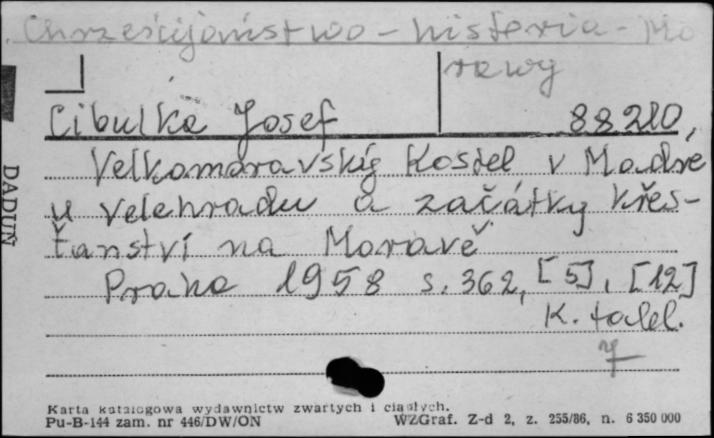 Chrześcijaństwo - historia - Mo
rawy
Cibulka Josef
88210,
Velkomoravský kostel v Modré
u Velehradu a začátky křes-
ťanství na Moravě
Praha 1958 s. 362, [5], [12]
K. tabl.
DADUŃ
Karta katalogowa wydawnictw zwartych i ciągłych.
Pu-B-144 zam. nr 446/DW/ON
WZGraf. Z-d 2, z. 255/86, n. 6 350 000